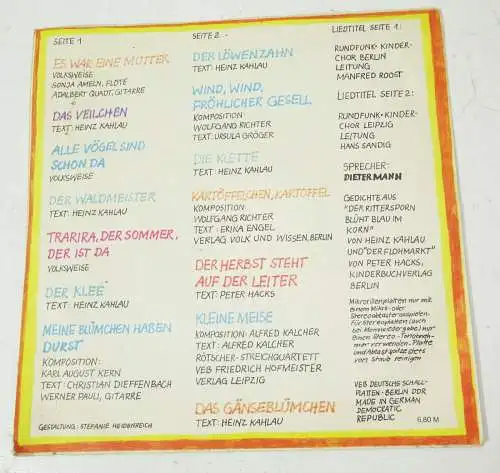 SEITE 1
ES WAR EINE MUTTER
VOLKSWEISE
SONJA AMELN, FLÖTE
ADALBERT QUADT, GITARRE
DAS VEILCHEN
TEXT: HEINZ KAHLAU
ALLE VÖGEL SIND
SCHON DA
VOLKSWEISE
DER WALDMEISTER
TEXT: HEINZ KAHLAU
TRARIRA, DER SOMMER,
DER IST DA
VOLKSWEISE
DER KLEE
TEXT: HEINZ KAHLAU
MEINE BLÜMCHEN HABEN
DURST
KOMPOSITION:
KARL AUGUST KERN
TEXT: CHRISTIAN DIEFFENBACH
WERNER PAULI, GITARRE
GESTALTUNG: STEFANIE HEIDENREICH
SEITE 2
DER LÖWENZAHN
TEXT: HEINZ KAHLAU
WIND, WIND,
FRÖHLICHER GESELL
KOMPOSITION
WOLFGANG RICHTER
TEXT: URSULA GRÖGER
DIE KLETTE
TEXT: HEINZ KAHLAU
KARTÖFFELCHEN, KARTOFFEL
KOMPOSITION
WOLFGANG RICHTER
TEXT: ERIKA ENGEL
VERLAG VOLK UND WISSEN, BERLIN
DER HERBST STEHT
AUF DER LEITER
TEXT: PETER HACKS
KLEINE MEISE
KOMPOSITION: ALFRED KALCHER
TEXT: ALFRED KALCHER
RÖTSCHER-STREICHQUARTETT
VEB FRIEDRICH HOFMEISTER
VERLAG LEIPZIG
DAS GÄNSEBLÜMCHEN
TEXT: HEINZ KAHLAU
LIEDTITEL SEITE 1:
RUNDFUNK-KINDER-
CHOR BERLIN
LEITUNG
MANFRED ROOST
LIEDTITEL SEITE 2:
RUNDFUNK-KINDER-
CHOR LEIPZIG
LEITUNG
HANS SANDIG
SPRECHER:
DIETERMANN
GEDICHTE AUS
"DER RITTERSPORN
BLÜHT BLAU IM
KORN"
VON HEINZ KAHLAU
UND "DER FLOHMARKT"
VON PETER HACKS,
KINDERBUCHVERLAG
BERLIN
Mikrorillenplatten nur mit
einem Mikro- oder
Stereoabtaster abspielen.
Für Stereoplatten (auch
bei Monowiedergabe) nur
einen Stereo-Tonabneh-
mer verwenden. Platte
und Abtastspitze stets
vom Staub reinigen
VEB DEUTSCHE SCHALL-
PLATTEN · BERLIN DDR
MADE IN GERMAN
DEMOCRATIC
REPUBLIC
6,80 M